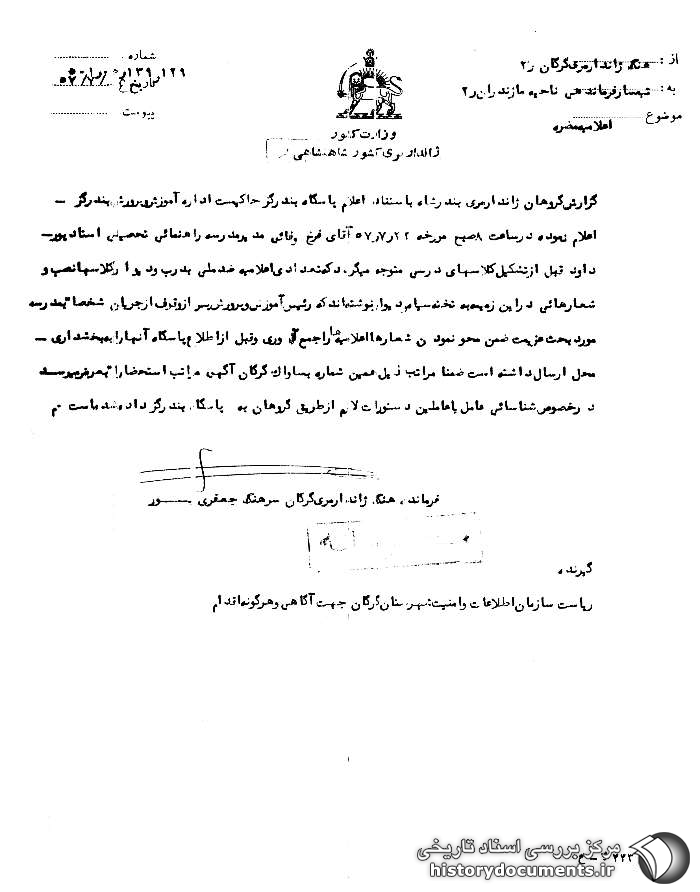 از : هنگ ژاندارمری گرگان ر۲
به : تیمسار فرماندهی ناحیه مازندران ر۲
موضوع اعلامیه مضره
شماره
تاریخ
پیوست
وزارت کشور
ژاندارمری کشور شاهنشاهی
گزارش گروهان ژاندارمری بندرشاه باستناد اعلام پاسگاه بندرگز حاکیست اداره آموزش و پرورش بندرگز –
اعلام نموده در ساعت ۸ صبح مورخه ۲۲ر۷ر۵۷ آقای فرخ وفائی مدیر مدرسه راهنمائی تحصیلی استاد پور –
داود قبل از تشکیل کلاسهای درسی متوجه میگردد که تعدادی اعلامیه ضد ملی بدرب و دیوار کلاسها نصب و
شعارهائی در این زمینه به تخته سیاه و دیوار نوشته‌اند که رئیس آموزش و پرورش پس از وقوف از جریان شخصا بمدرسه
مورد بحث عزیمت ضمن محو نمودن شعارها اعلامیه ها را جمع آوری و قبل از اطلاع پاسگاه آنها را به بخشداری –
محل ارسال داشته است ضمنا مراتب ذیل همین شماره بساواک گرگان آگهی مراتب استحضارا بعرض میرسد
در خصوص شناسائی عامل یا عاملین دستورات لازم از طریق گروهان به پاسگاه بندرگز داده شده است
فرمانده هنگ ژاندارمری گرگان سرهنگ جعفری
گیرنده
ریاست سازمان اطلاعات و امنیت شهرستان گرگان جهت آگاهی و هرگونه اقدام
مرکز بررسی اسناد تاریخی
historydocuments.ir